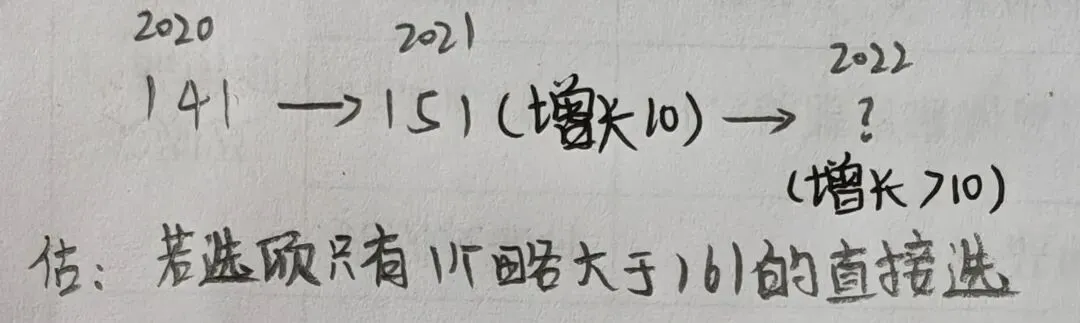 2020 2021 2022
141 → 151 (增长10) → ?
(增长>10)
估: 若选项只有1个略大于161的直接选